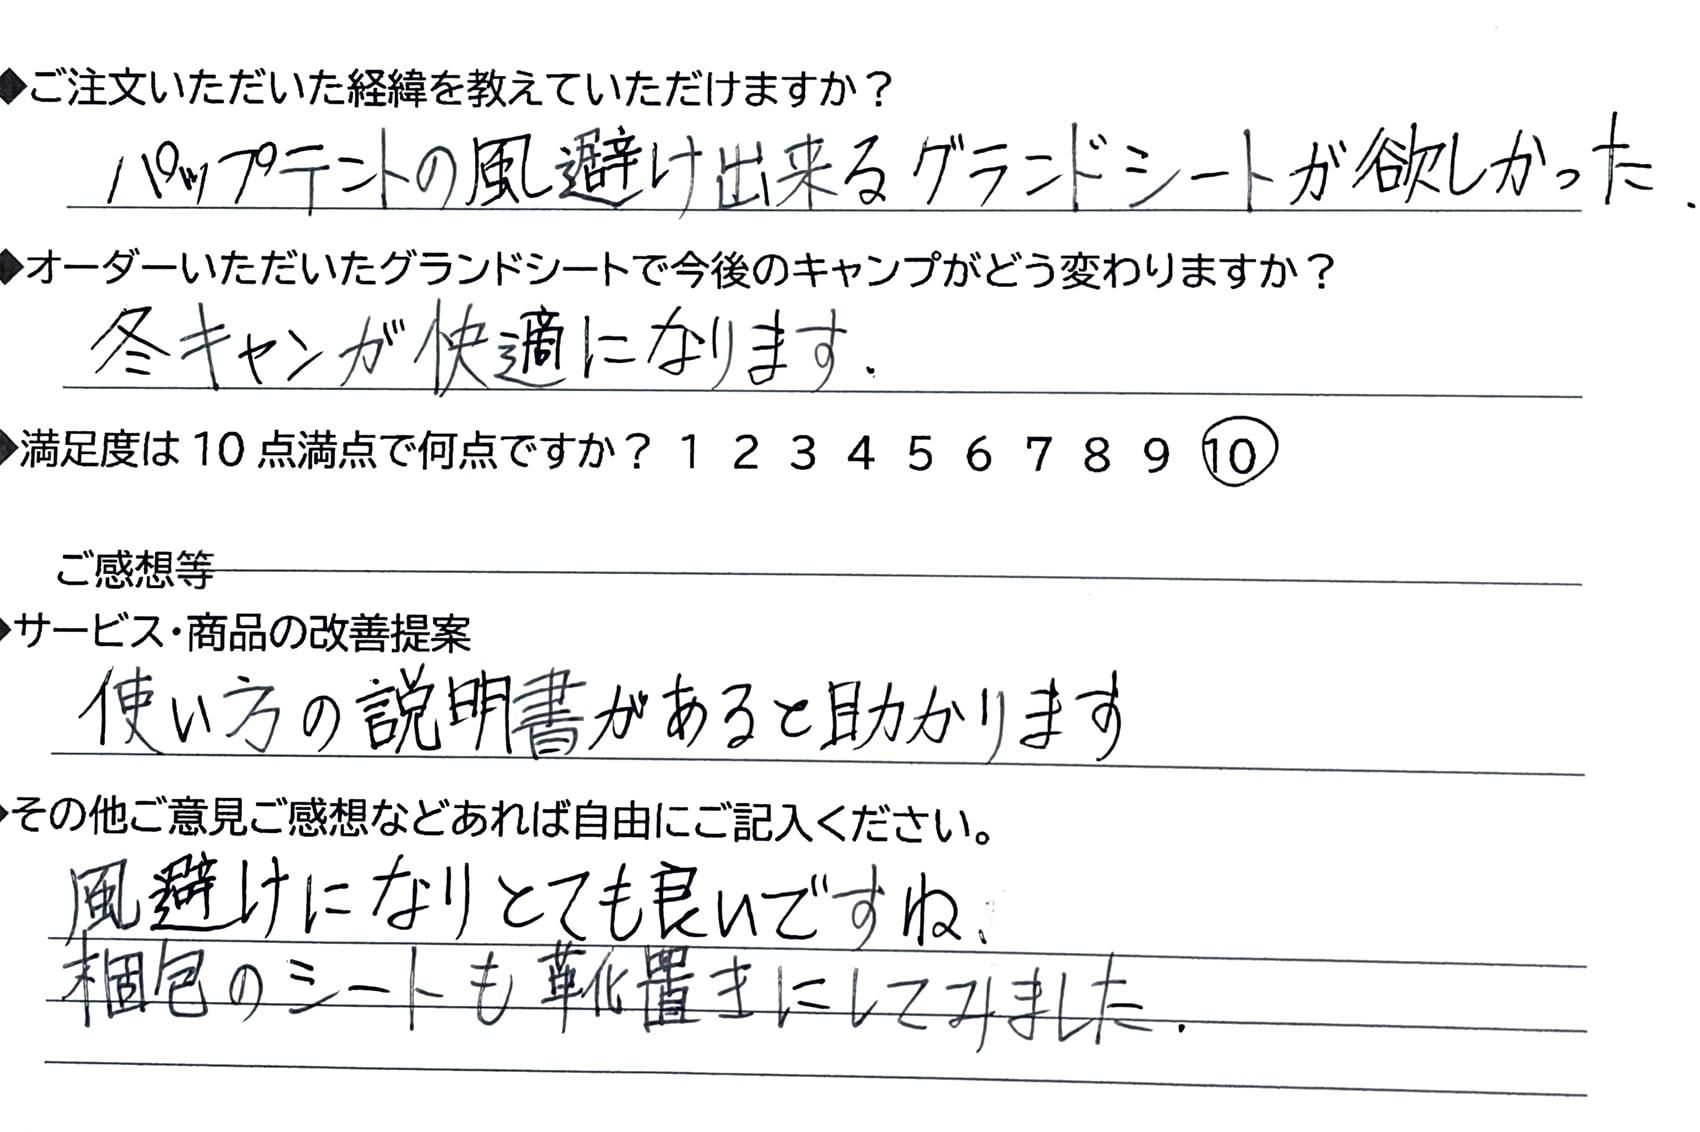 ◆ご注文いただいた経緯を教えていただけますか?
パップテントの風避け出来るグランドシートが欲しかった.
◆オーダーいただいたグランドシートで今後のキャンプがどう変わりますか?
冬キャンが快適になります.
◆満足度は10点満点で何点ですか? 1 2 3 4 5 6 7 8 9 10
ご感想等
◆サービス・商品の改善提案
使い方の説明書があると助かります
◆その他ご意見ご感想などあれば自由にご記入ください。
風避けになりとても良いですね.
梱包のシートも靴置きにしてみました.